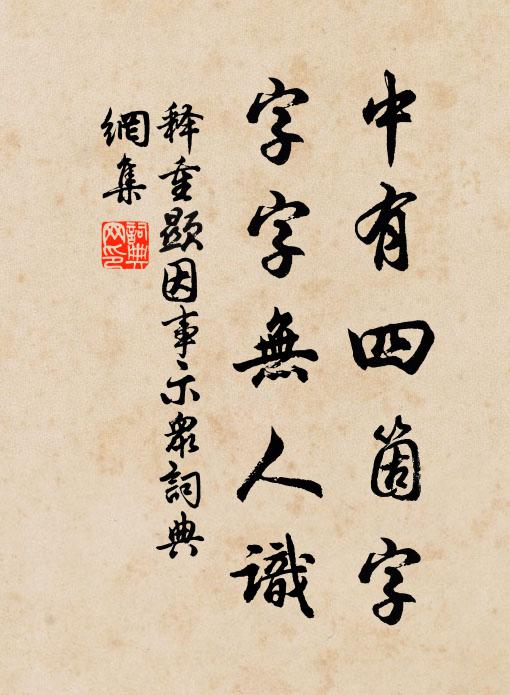 中有四箇字
字字無人識
释重顯因事示衆詞典
網集
詞典
网印